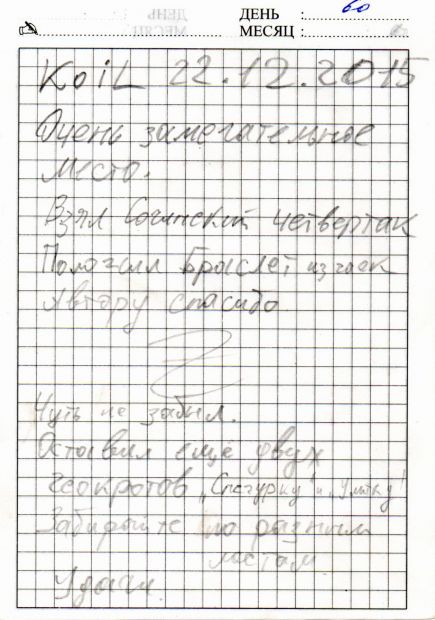 ДЕНЬ : 60
МЕСЯЦ :
KoiL 22.12.2015
Очень замечательное
место.
Взял Сочинский четвертак
Положил Браслет из гаек
Автору спасибо
Чуть не забыл.
Оставил еще двух
геокротов „Снегурку" и „Улитку"
Забирайте по разным
местам
Удачи.